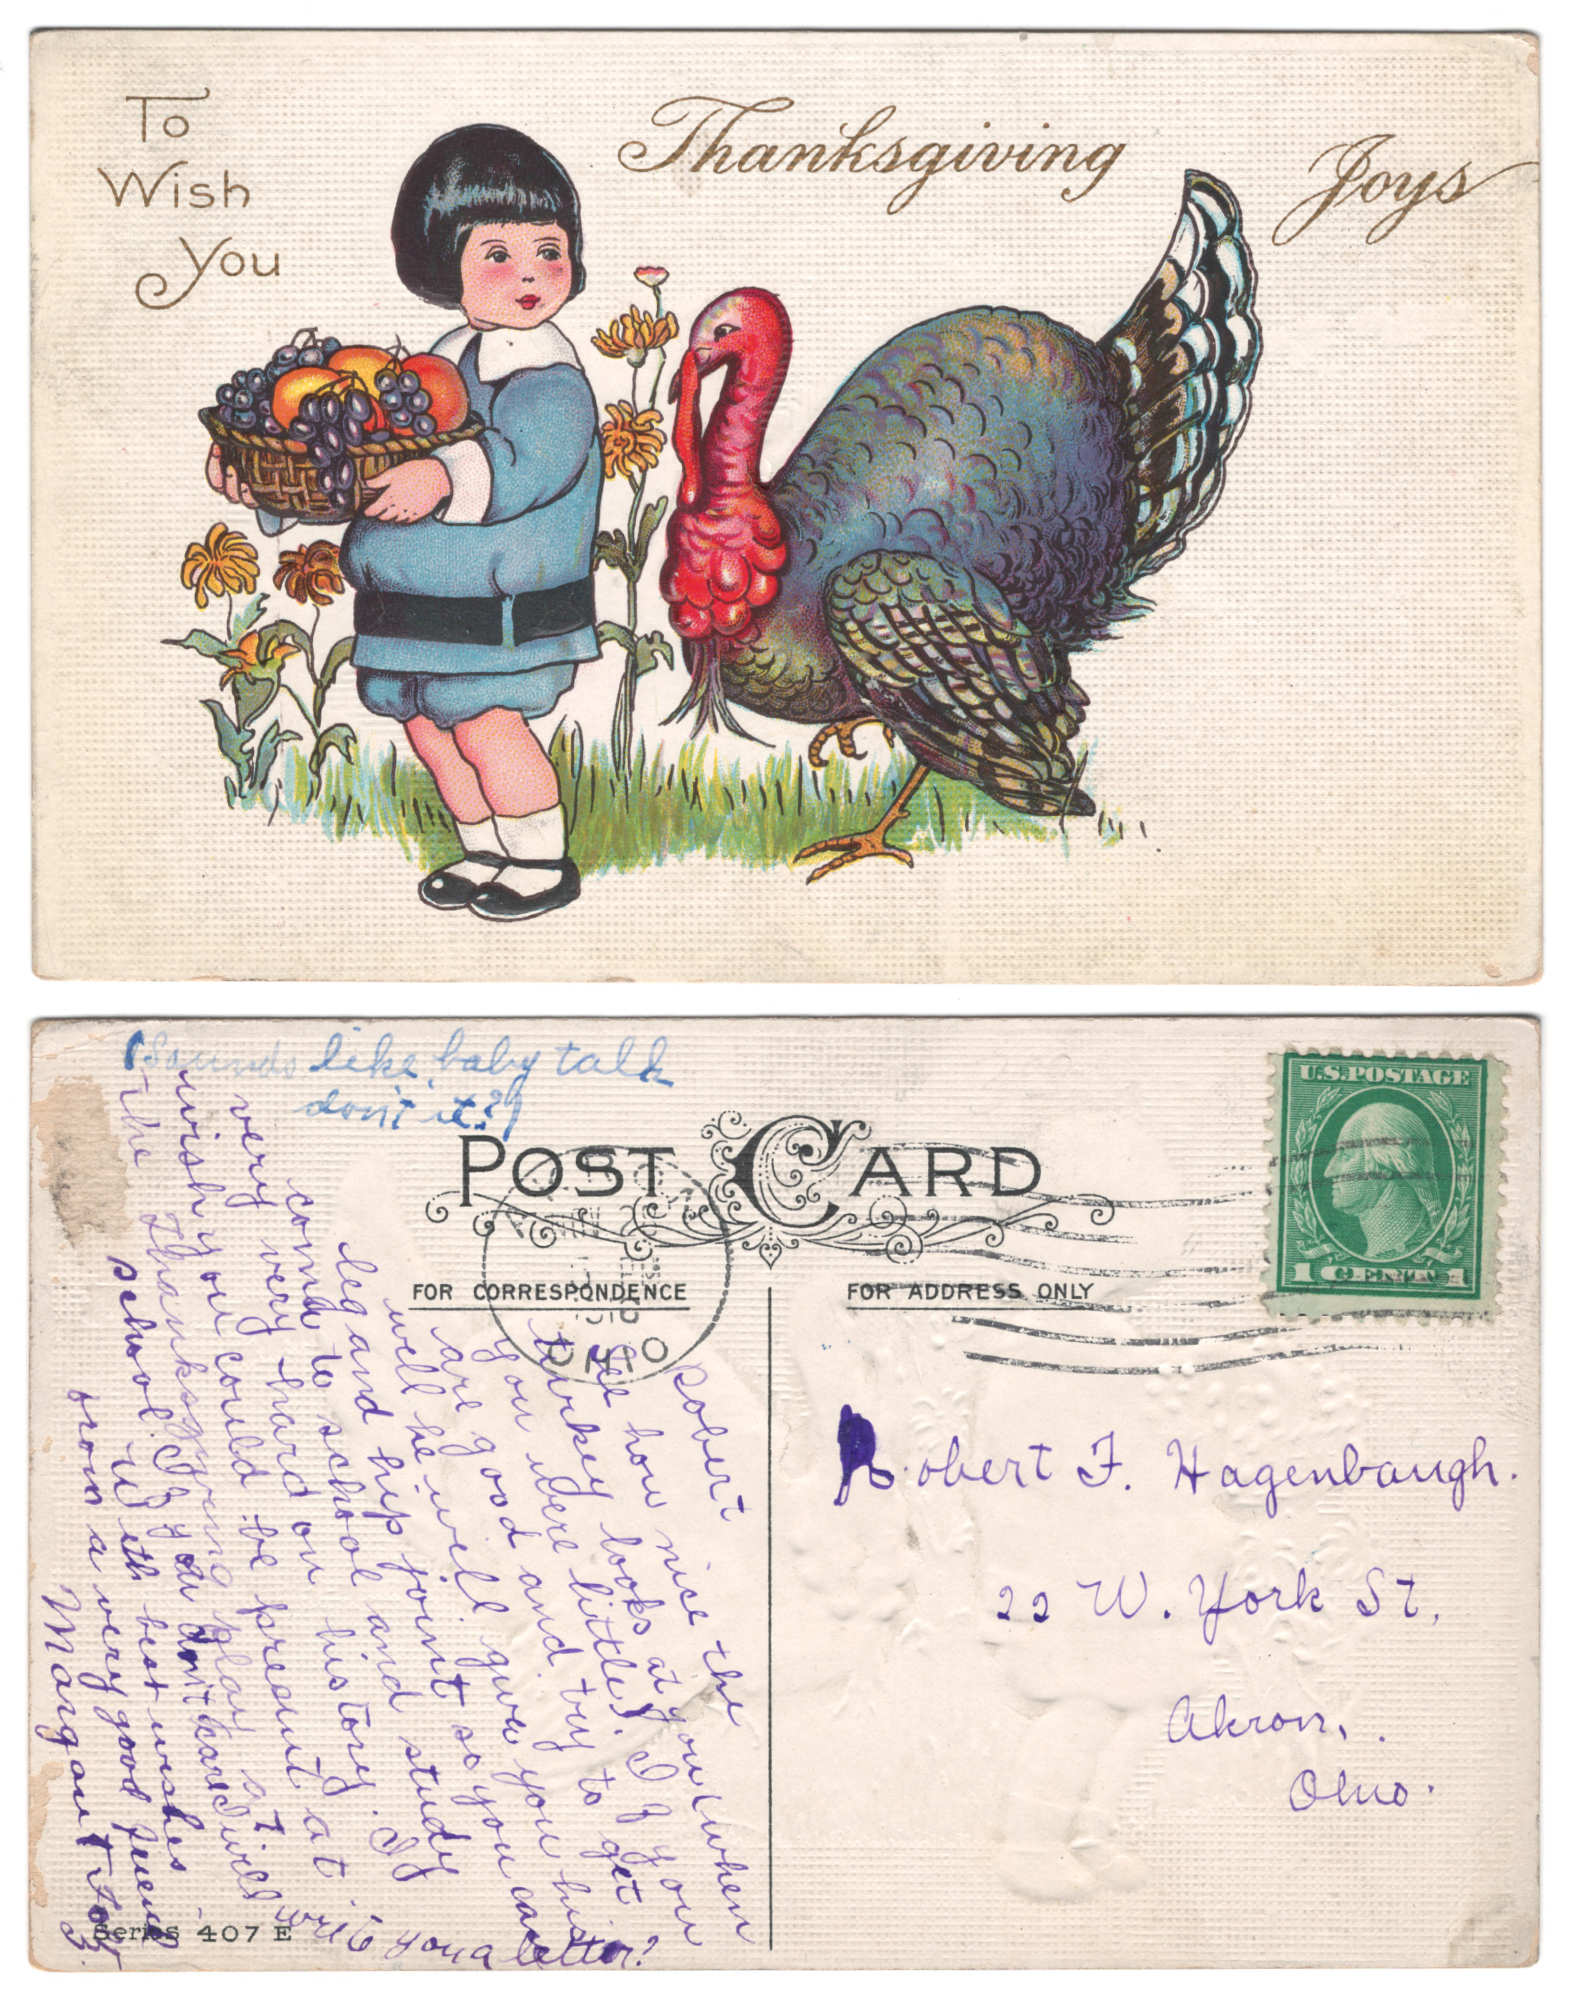 To
Wish
You
Thanksgiving Joys
(Sounds like baby talk
don't it?)
POST CARD
FOR CORRESPONDENCE
FOR ADDRESS ONLY
U.S. POSTAGE
1 CENT 1
OHIO
Robert
See how nice the
turkey looks at you (when
you were little). If you
are good and try to get
well he will give you his
leg and hip joint so you can
come to school and study
very very hard on history. I
wish you could be present at
the Thanksgiving play at
school. If you don't care I will write you a letter?
with best wishes
from a very good friend
Margaret
Robert F. Hagenbaugh.
22 W. York St,
Akron,
Ohio.
Series 407 E